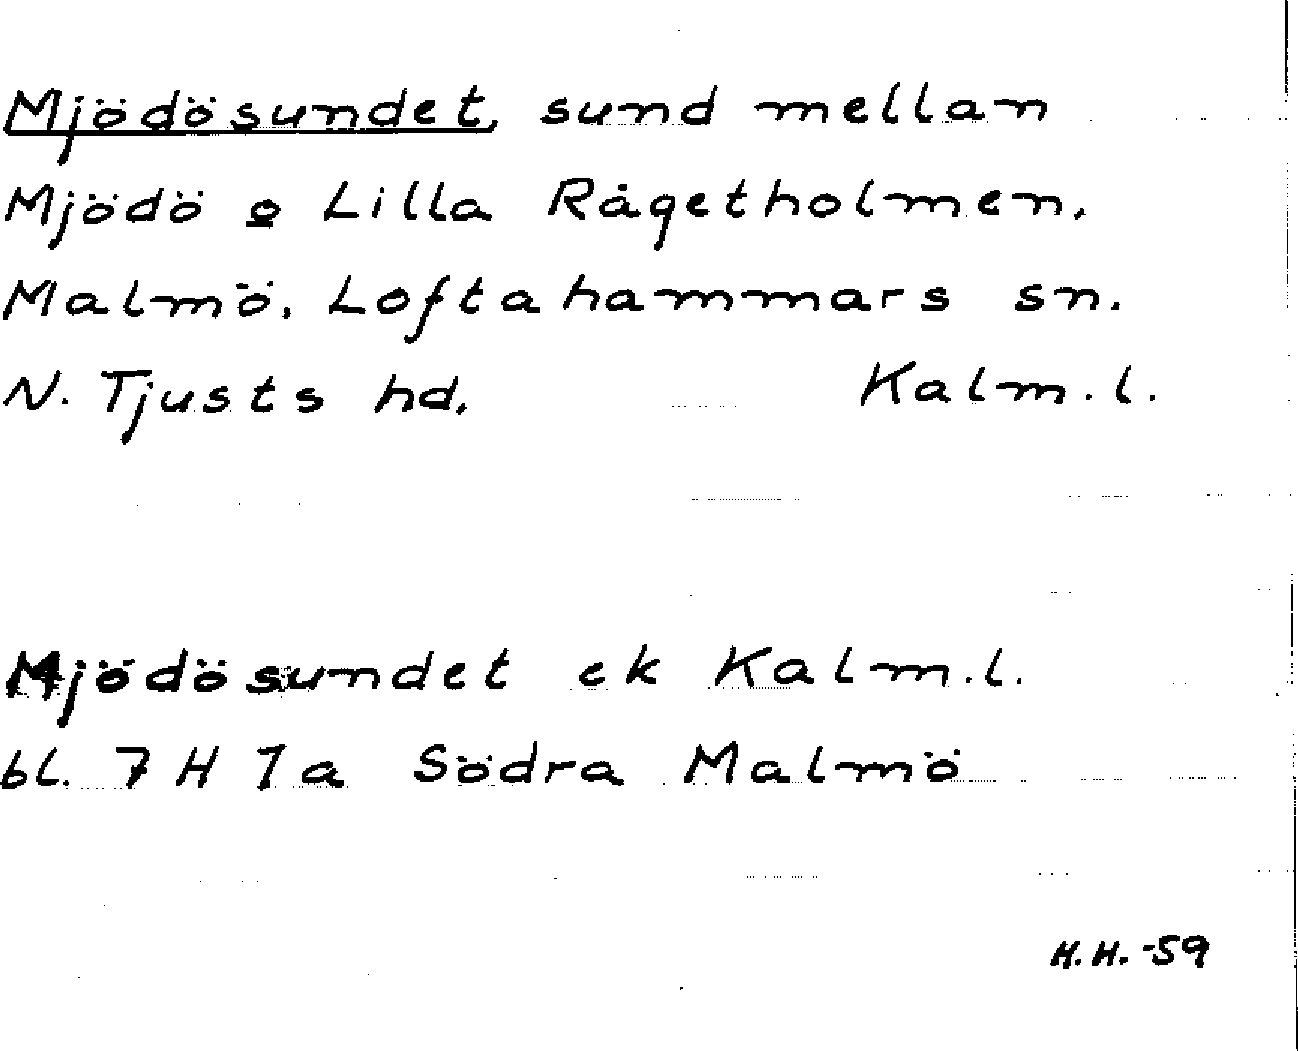 Mjödösundet, sund mellan
Mjödö o Lilla Rågetholmen,
Malmö, Loftahammars sn.
N. Tjusts hd. Kalm.l.
Mjödösundet ek Kalm.l.
bl. 7 H 1a Södra Malmö
H.H. -59